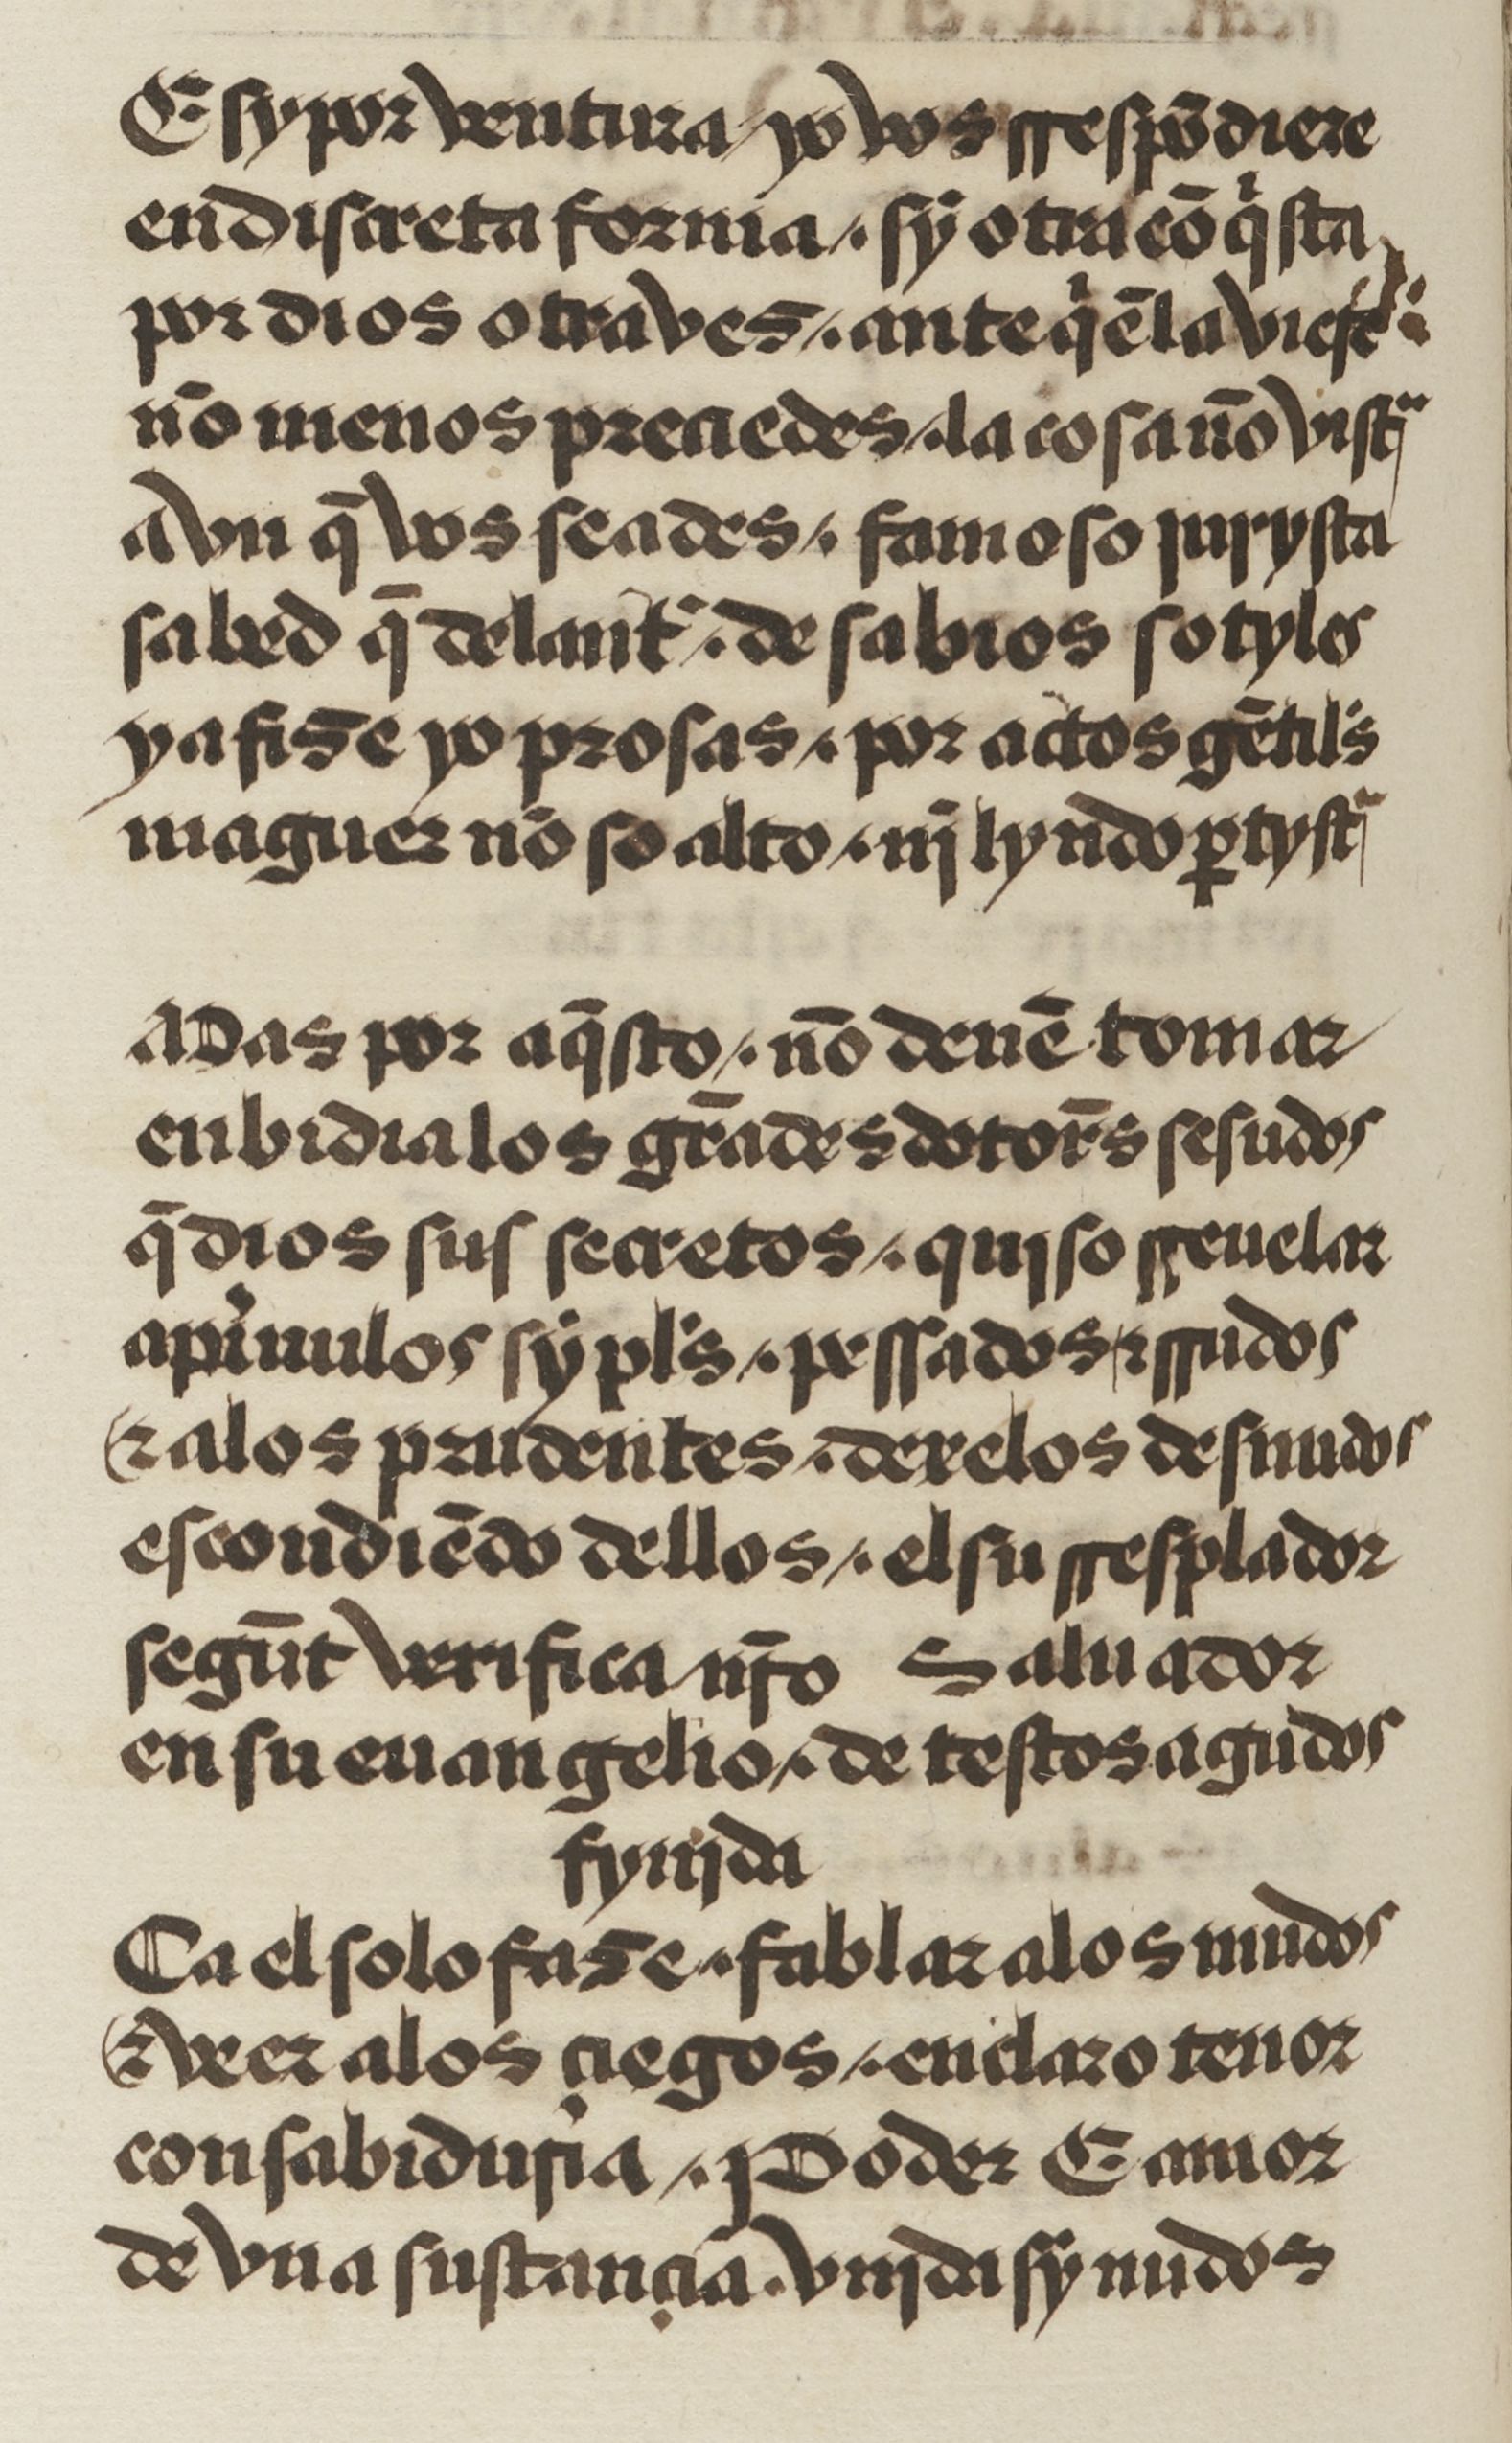 E sy por ventura / yo vos rrespōdiere
en discreta forma /. sỹ otra cōqⁱsta
por dios otra ves /. ante qⁱ ēla viese
nō menos preciedes /. la cosa nō vistᵃ
avn q̄ vos seades /. famoso jurysta
sabed q̄ delantᵉ /. de sabios sotyles
ya fise yo prosas /. por actos gētil's
maguer nō so alto /. nj̄ lyndo ꝑtystᵃ
Mas por aq̄sto /. nō deuē tomar
enbidia los grādes dotor̄s sesudos
q̄ dios sus secretos /. qujso rreuelar
a pⁱuulos sỹpl's /. pessados ⁊ rrudos
⁊ alos prudentes /. dexelos desnudos
escondiēdo dellos /. el su rresplador
segūt verifica nr̄o Saluador
en su euangelio /. de testos agudos
fynjda
Ca el solo fase /. fablar alos mudos
⁊ veer alos çiegos /. en claro tenor
con sabidurja /. Poder E amor
de vna sustançia . vnjda sỹ nudos